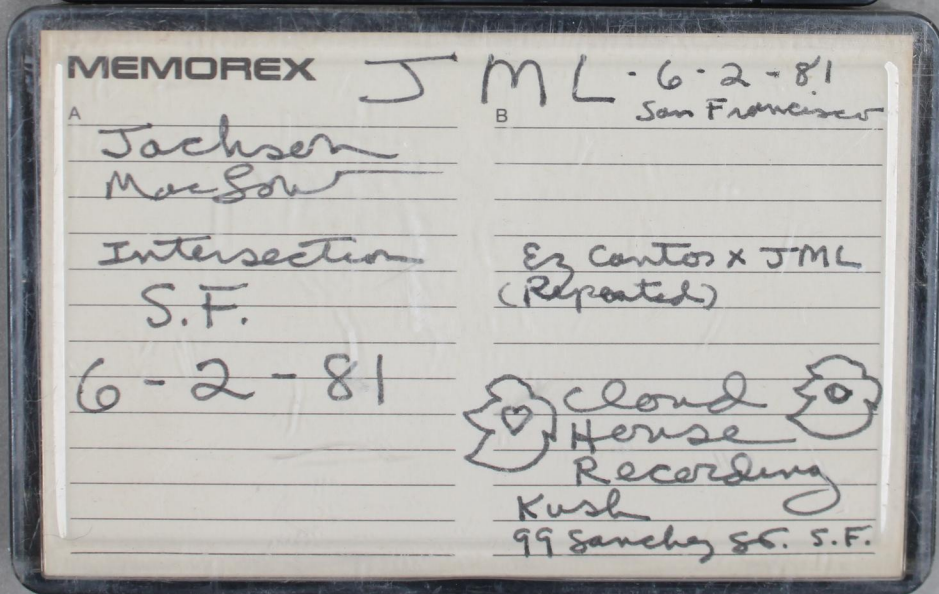 MEMOREX J M L · 6 · 2 - 81
San Francisco
A
Jackson
MacLow
Intersection
S.F.
6 - 2 - 81
B
Ez Cantos x JML
(Repeated)
Cloud
House
Recording
Kush
99 Sanchez St. S.F.